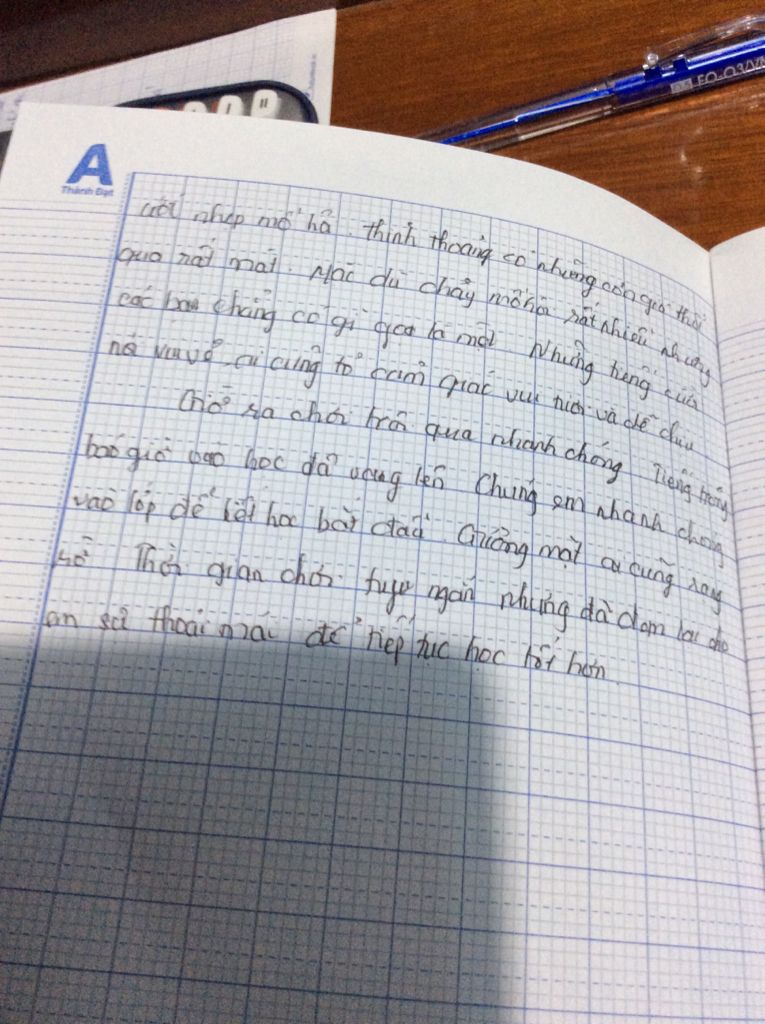 A
Thành Đạt
ướt nhẹp mồ hô. thỉnh thoảng có những cơn gió thổi
qua rất mát. Mặc dù chảy mồ hôi rất nhiều nhưng
các bạn chẳng có gì gọi là mệt Những tiếng cười
nói vui vẻ ai cũng tỏ cảm giác vui tươi và dễ chịu
Giờ ra chơi trôi qua nhanh chóng Tiếng trống
báo giờ vào học đã vang lên Chúng em nhanh chóng
vào lớp để tiết học bắt đầu. Gương mặt ai cũng rạng
rỡ Thời gian chơi tuy ngắn nhưng đã đem lại cho
em sự thoải mái để tiếp tục học tốt hơn.